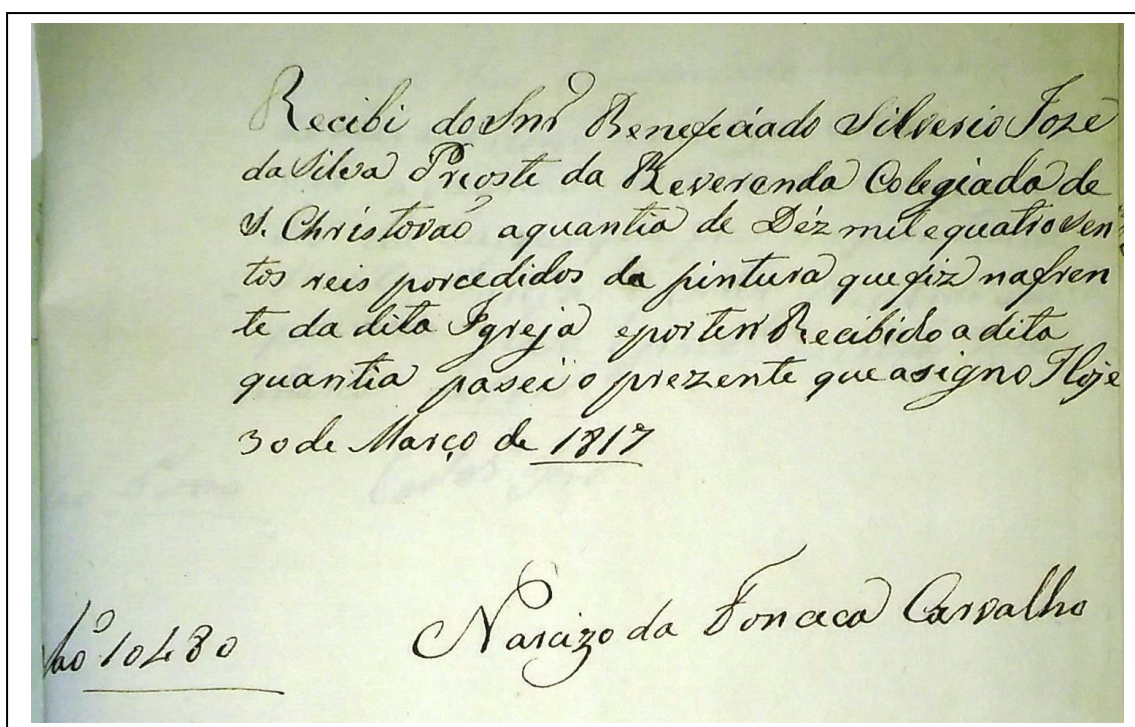 Recibi do Snr Beneficiado Silverio Joze
da Silva Prioste da Reveranda Colegiada de
S. Christovaõ aquantia de Déz mil e quatro sen
tos reis porcedidos da pintura que fiz nafren
te da dita Igreja eporter Recibido a dita
quantia pasei o prezente que asigno Hoje
30 de Março de 1817
Narcizo da Fonceca Carvalho
10480